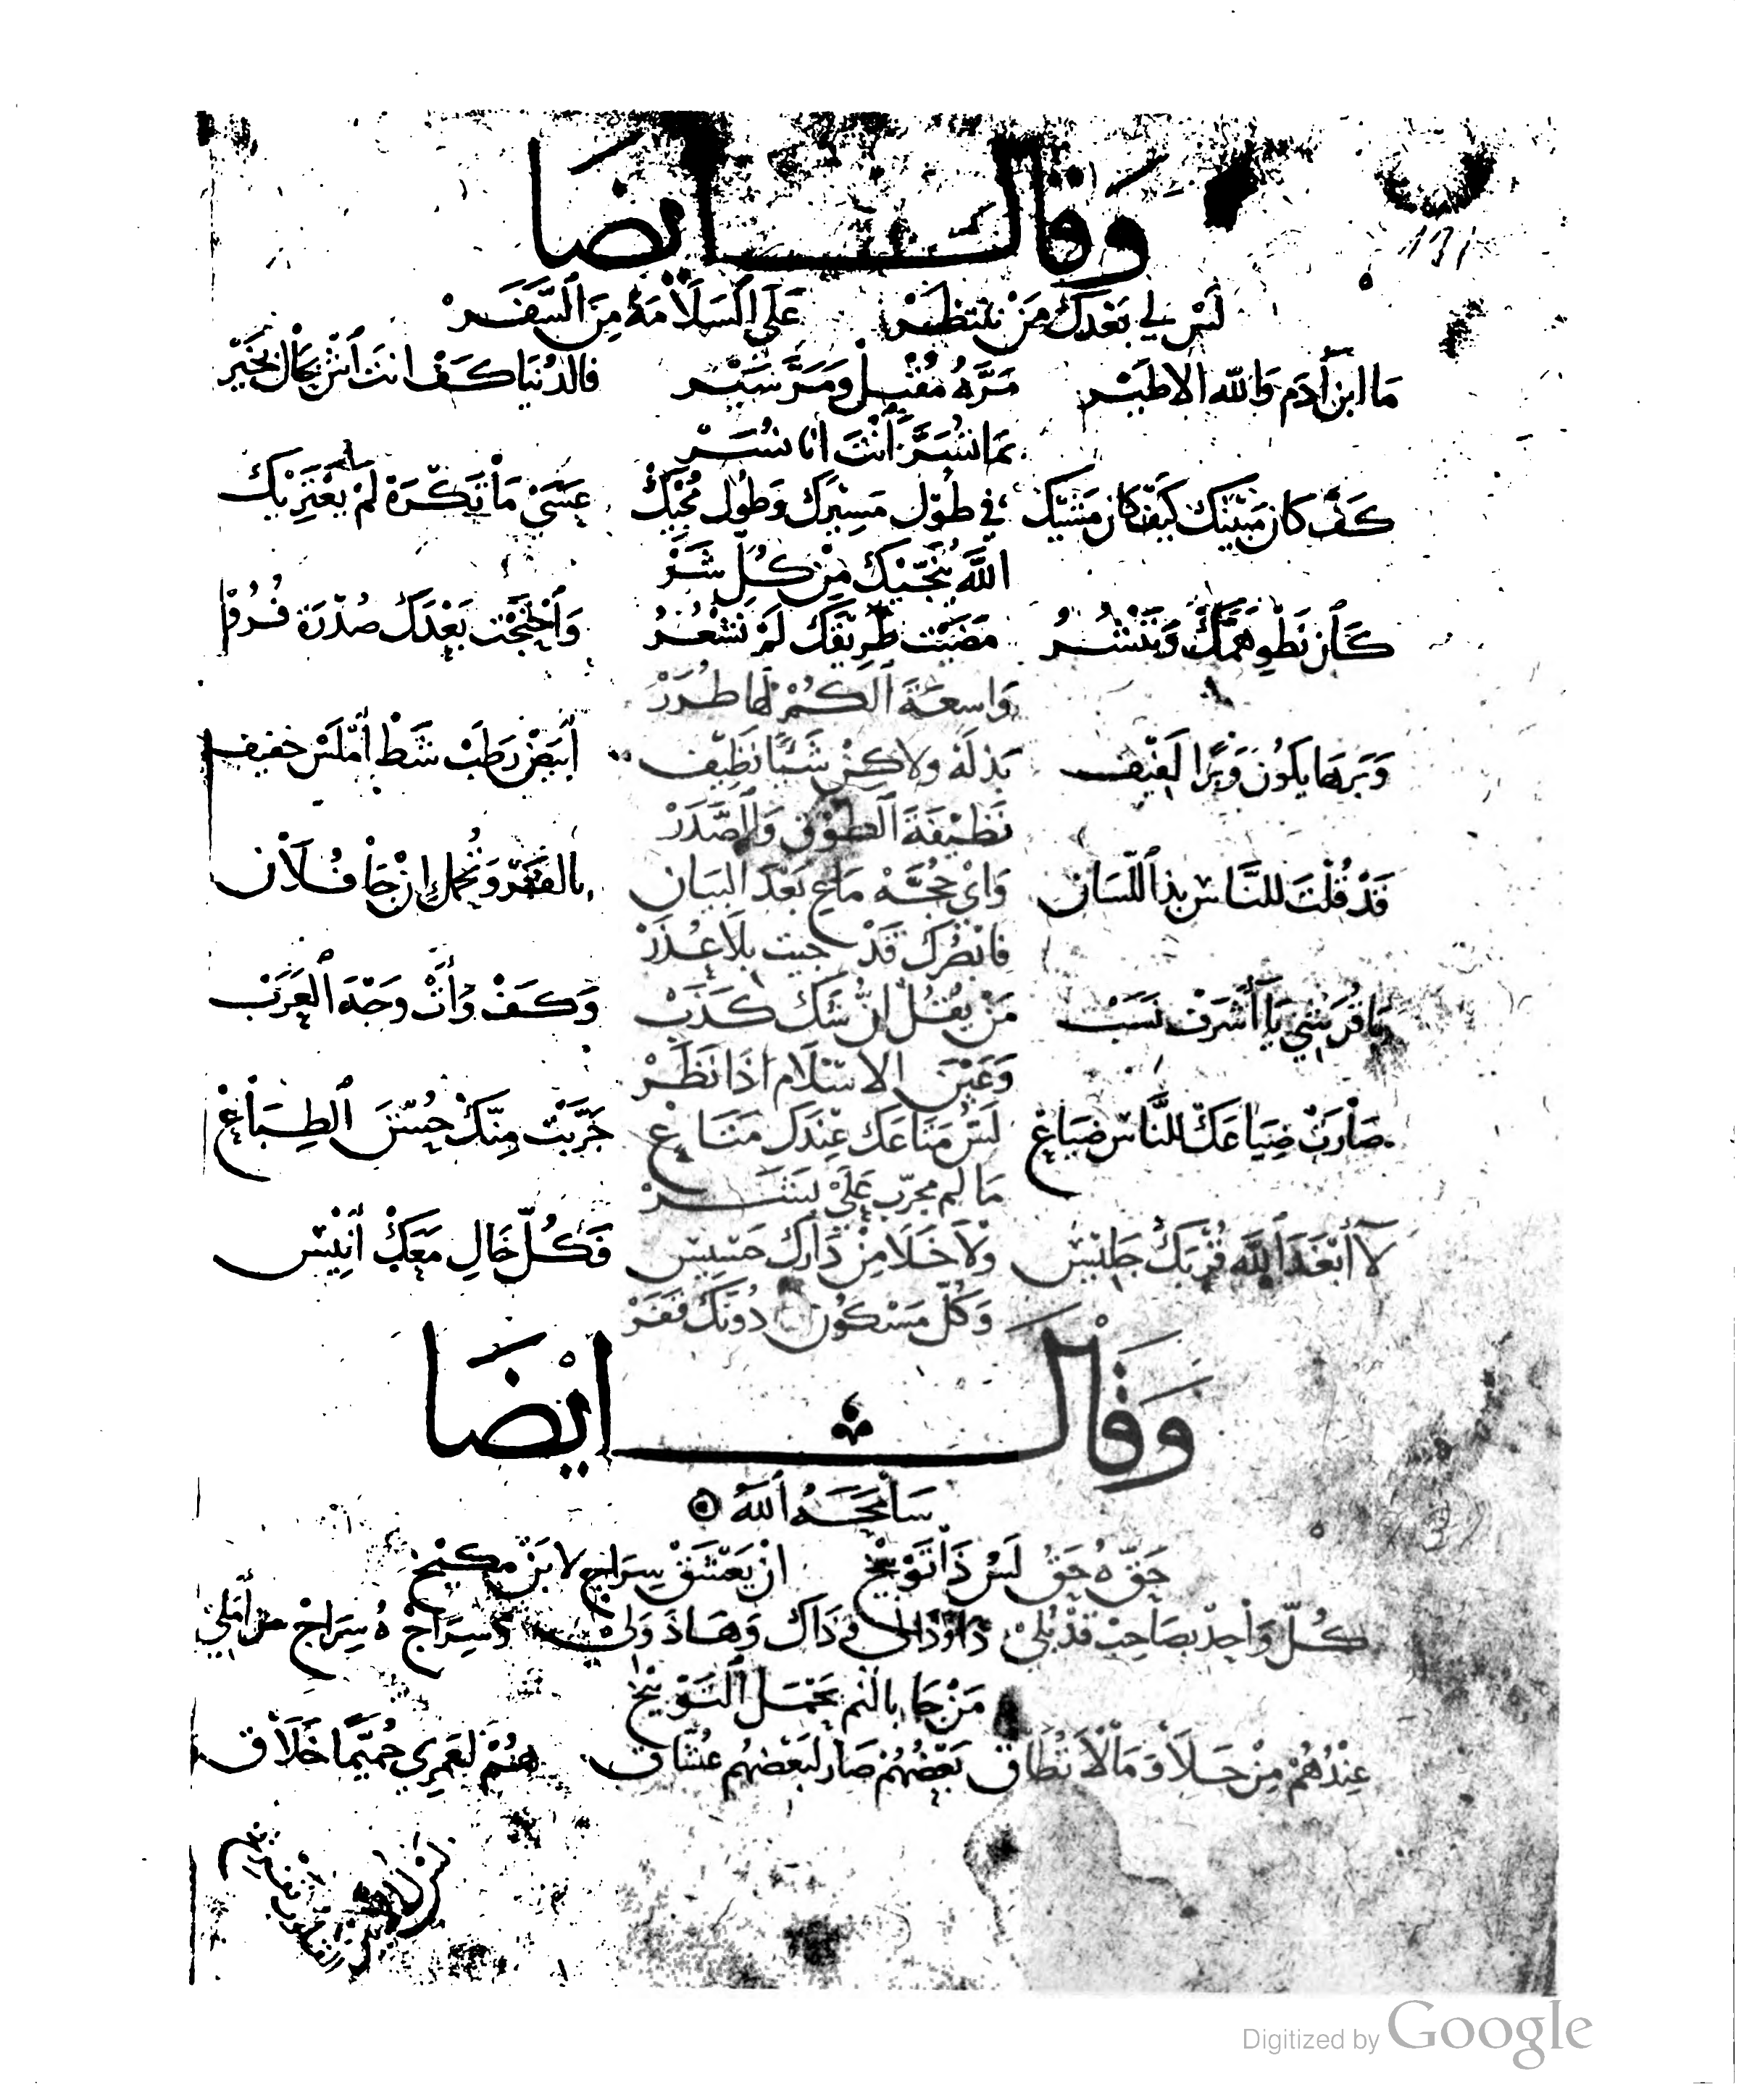 وَقَالَ ايضَا
١٣١
لَسْ لِي بَعْدَكْ مَنْ نَنْتَظِرْ عَلَى السَّلَامَهْ مِنَ السَّفَرْ
مَا ابن أَدَم وَاللّه الا طَيْر مَرَّهْ مُقْبِلْ وَمَرَّ سَيْر فالدُنْيَا كَفْ انتَ أَنْت بحَال بخَيْر
بمَا تُسَرَّ أَنْتَ أنَا نُسَرْ
كَفْ كَان مَبِيْتَك كَيف كَان مَشْيَك في طُول مَسِيْرَكْ وَطُول مُجَيَّكْ عَسَى مَا تَكْرَهْ لَمْ يعْتَرِيكْ
اللَّه يُنَجّيْكَ مِنْ كُلّ شَرْ
كَأن نَطْوِ هَمَّكْ وَنَنْشُرُ مَضَيْت طَرِيْقَكْ لَمْ نَشْعُرُ وَاحْتَجْت بَعْدَكْ صُدْرَهْ فُرُو
وَاسعَةَ الكُمّ لهَا طُرَرْ
وَبَرهَا يكُون وَبَرًا لَفِيف بَذلَهْ ولاكِنْ شَيًا نَظِيْف أبْيَضْ رَطَبْ شَطْ أمْلَسْ خفِيف
نَظِيْفَةَ الطَّوْق وَالصَّدَرْ
قَدْ قُلْتَ للنَّاس بذا اللّسَان وَايْ حُجَّهْ مَاعِ بَعْدَ البيَان بالفَقْرّ وَتُحْمَل إنْ جَا فُلَان
فانْظُرَكْ قَدْ جيت بِلَا عُذَرْ
يَا قُرَيْشِي يَا أَشْرَفْ نَسَبْ مَنْ يقُلْ انّ شَك كَذَبْ وَكَفْ وَأنْتْ وَجْهَ العَرَبْ
وَعَيْنَ الاسْلَام اذَا نَظَرْ
صَارَتْ ضِيَاعَكْ للنَّاس ضيَاعْ لَسْ مَتَاعَك عِنْدَكْ مَتَاعْ جَرَّبْت مِنّكْ حُسْنَ الطِبَاعْ
مَا لم يجرّب عَلَى بَشَرْ
لَا أبْعَدَ اللَّه قُرْبَكْ جَلِيْس وَلَا خَلَا مِنْ دَارَكْ حَسِيْس فَكُلّ خَالِ مَعَكْ أنِيْس
وَكُلّ مَسْكُون دُونَكْ قَفَرْ
وَقَالَ ايْضَا
سَامَحَهُ اللَّهُ
حَقّ هُ حَقْ لَسْ ذَا تَوْبِيْخْ انْ يَعْشَقْ سِرَاج لا بَنْ مكنخ
كُلّ وَاحِدْ بصَاحِبْ قَدْ بُلِي ذَاوْ ذَا فِذَاكْ وَهَاذَ وَلِي وَسِرَاجْ هُ سِرَاجْ أملِي
مَنْ جَا بالنْم يحْمَل التَّوْبيْخ
عِنْدُهُمْ مِنْ حَلَاوَ مَا لَا تُطَاق بَعْضُهُمْ صَار لبَعْضهُم عُشَّاق هُمْ لَعَمرِي حُمَيَّما خَلَاق
Digitized by Google